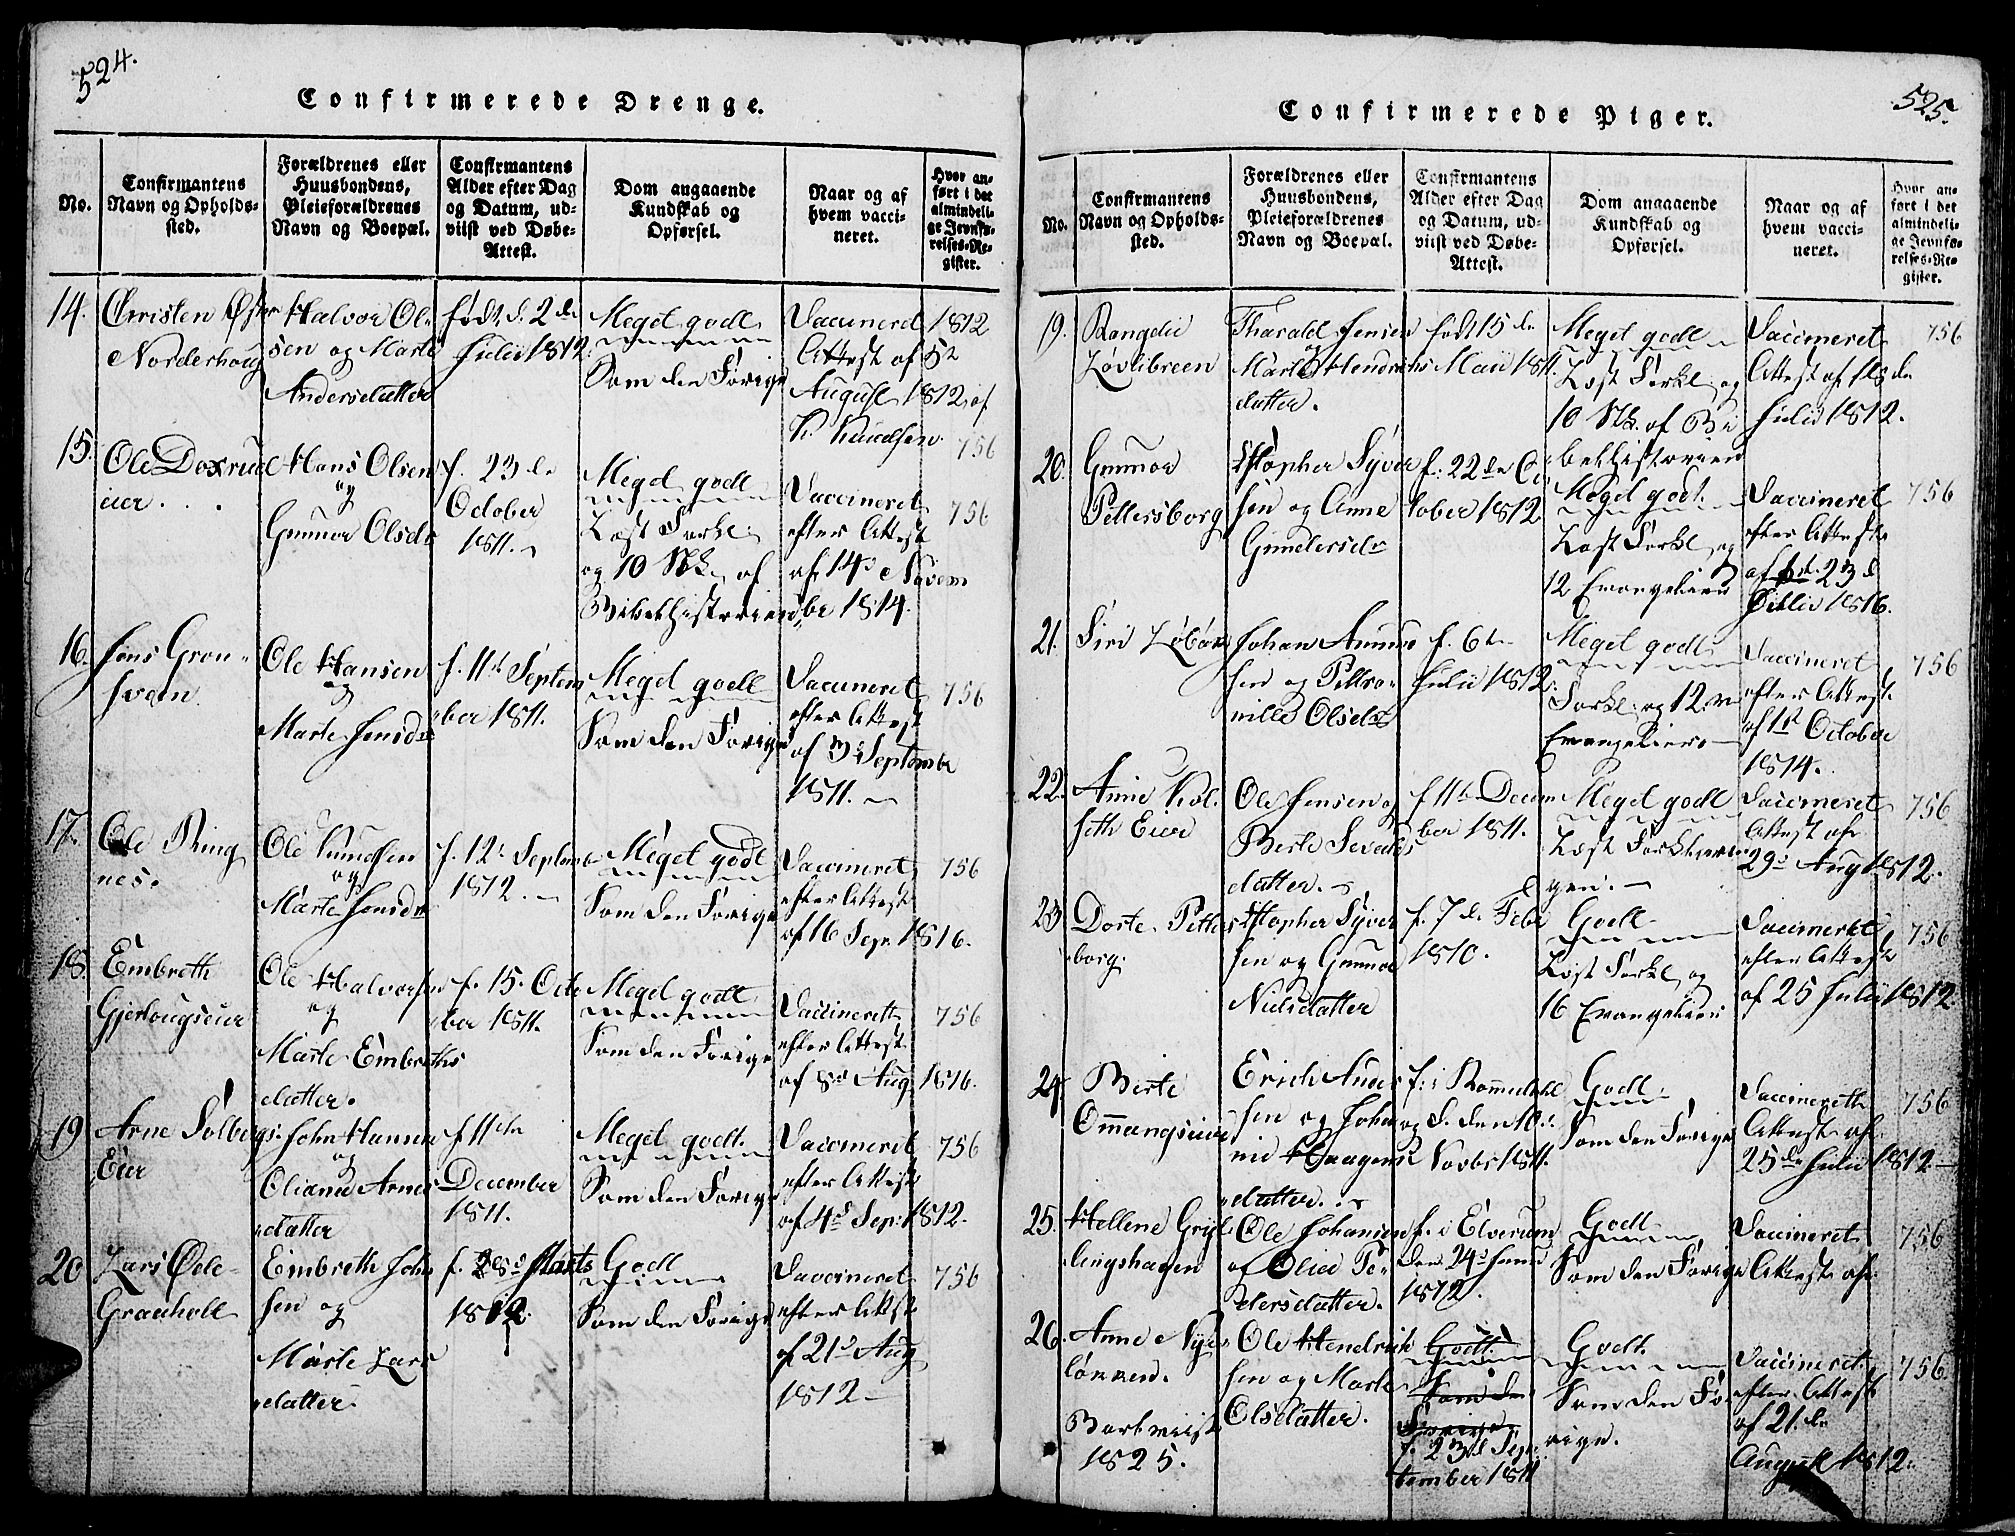 524.
Confirmerede Drenge.
No.
Confirmantens
Navn og Opholds-
sted.
Forældrenes eller
Huusbondens,
Pleieforældrenes
Navn og Boepæl.
Confirmantens
Alder efter Dag
og Datum, ud-
viist ved Døbe-
Attest.
Dom angaaende
Kundskab og
Opførsel.
Naar og af
hvem vacci-
neret.
Hvor an-
ført i det
almindeli-
ge Jevnfø-
relses-Re-
gister.
14.
Christen Øster
Norderhoug
Halvor Ol-
sen og Marte
Andersdatter
født d. 2de
Julii 1812.
Meget godt
Som den Forige
Vaccineret 1812
Attest af 5te
August 1812 af
K. Knudsen
756
15.
Ole Doxrud
eier
Hans Olsen
og
Gunnor Olsdr
f. 23de
October
1811.
Meget godt
Læst Forkl.
og 10 Stk. af
Bibelhistorien
Vaccineret
efter Attest
af 14 Novem
ber 1814.
756
16.
Jens Gron-
sveen
Ole Hansen
og
Marte Jensdr
f. 11te Septem
ber 1811.
Meget godt
Som den Forige
Vaccineret
efter Attest
af 3 Septembr
1811.
756
17.
Ole Ring
nes.
Ole Knudsen
og
Marte Jensdr
f. 12te Septem
1812.
Meget godt
Som den Forige
Vaccineret
efter Attest
af 16 Sep. 1816.
756
18.
Embreth
Gjerlougseier
Ole Halvorsen
og
Marte Embreths
datter.
f. 15. Octo
ber 1811.
Meget godt
Som den Forige
Vaccinereth
efter Attest
af 8de Aug 1816.
756
19
Arne Solbergs
Eier
John Hansen
og
Oliane Arnes
datter
f 11te
December
1811.
Meget godt.
Som den Forige
Vaccineret
efter Attest
af 4de Sep. 1812.
756
20
Lars Øde-
Graaholt
Embreth John
sen og
Marte Lars
datter.
f. Marts
1812
Godt
Som den Forige
Vaccineret
efter Attest
af 21de Aug
1812
756
525.
Confirmerede Piger.
No.
Confirmantens
Navn og Opholds-
sted.
Forældrenes eller
Huusbondens,
Pleieforældrenes
Navn og Boepæl.
Confirmantens
Alder efter Dag
og Datum, ud-
viist ved Døbe-
Attest.
Dom angaaende
Kundskab og
Opførsel.
Naar og af
hvem vacci-
neret.
Hvor an-
ført i det
almindeli-
ge Jevnfø-
relses-Re-
gister.
19.
Rangdie
Løvlibreen
Tharald Jensen
Marte Hendrichs
datter.
født 15de
Maii 1811.
Meget godt
Læst Forkl. og
10 Stk. af Bi
belhistorien
Vaccineret
Attest af 18de
Julii 1812.
756
20.
Gunnor
Pettersborg
Chstopher Syver
sen og Anne
Gundersdr
f. 22de Oc
tober 1812
Meget godt
Læst Forkl. og
12 Evangelier
Vaccineret
efter Attest
af 23d
Julii 1816.
756
21.
Siri
Johan Amund
sen og Pettro
nille Olsdr
f. 6te
Julii 1812.
Meget godt
Forkl. og 12
Evangelier
Vaccineret
efter Attest
af 1st October
1814.
756
22.
Anne Kol
seth Eier
Ole Jensen og
Berte Sevalds
datter.
f 11te Decem
ber 1811.
Meget godt
Læst Forklarin
gen.
Vaccineret
Attest af
29de Aug 1812.
756
23
Dorte Petters
borg.
Chstopher Syver
sen og Gunnor
Nielsdatter
f. 7de Febr
1810.
Godt
Læst Forkl. og
16 Evangelier
Vaccineret
efter Attest
af 25 Julii 1812
756
24.
Berte
Ommangseier
Erich Anders
sen og Johan
ne Haagens
datter.
f. i Rommedahl
og d. den 10de
Novbr 1811.
Godt
Som den Forige
Vaccinereth
Attest af
25de Julii 1812
756
25.
Hellene Gryt-
lingshagen
Ole Johansen
og Olia Pe-
dersdatter.
f. i Elverum
den 24de Junii
1812.
Godt
Som den Forige
Vaccineret
Attest af
756
26.
Anne Nye-
lønnen.
Bortreist
1825.
Ole Hendrik
sen og Marte
Olsdatter.
Godt.
Som den
Forige
f. 23d Sep
tember 1811
Godt.
Som den Fo-
rige.
Vaccineret
efter Attest
af 21.de
August 1812.
756